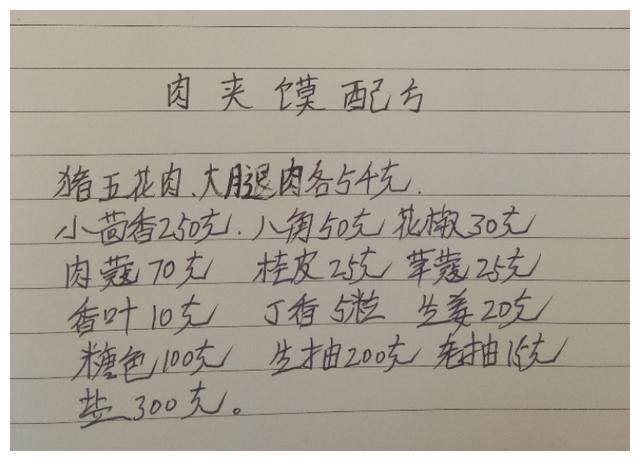 肉夹馍配方
猪五花肉、大腿肉各5千克.
小茴香250克.八角50克 花椒30克
肉蔻70克 桂皮25克 草蔻25克
香叶10克 丁香5粒 生姜20克
糖色100克 生抽200克 老抽15克
盐300克。